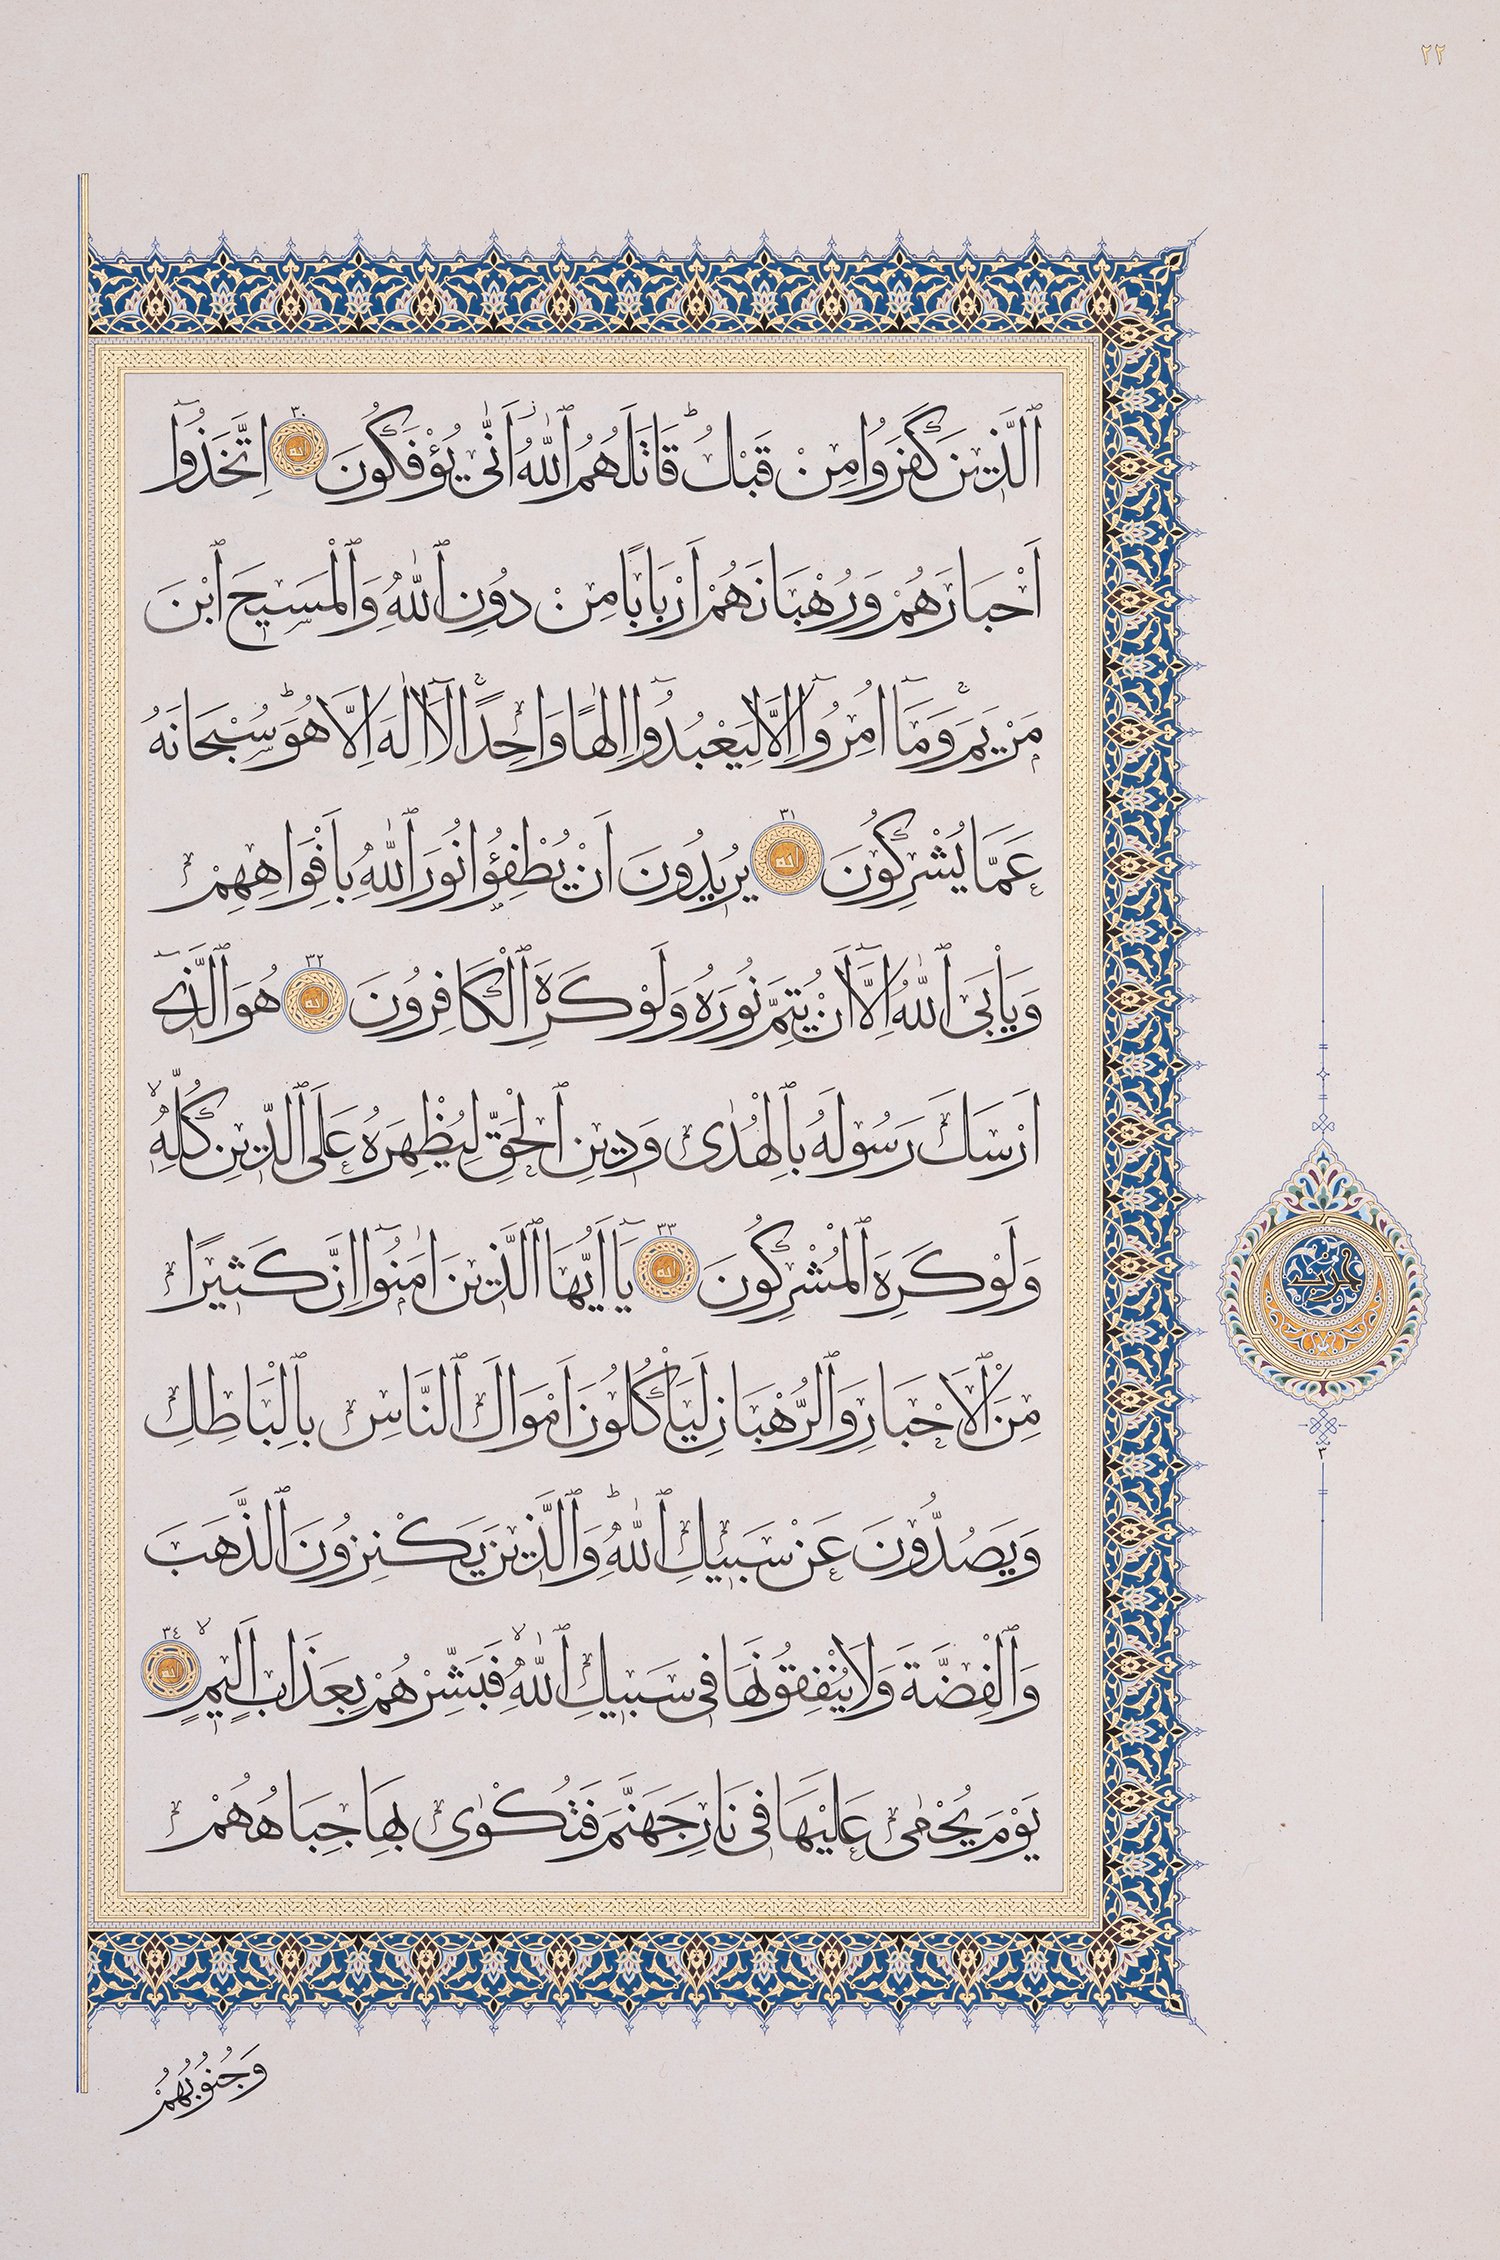 ٢٢
ٱلَّذِينَ كَفَرُوا مِنْ قَبْلُ قَاتَلَهُمُ ٱللّٰهُ اَنّٰى يُؤْفَكُونَ ٣٠ اِتَّخَذُٓوا
اَحْبَارَهُمْ وَرُهْبَانَهُمْ اَرْبَابًا مِنْ دُونِ ٱللّٰهِ وَٱلْمَسِيحَ ٱبْنَ
مَرْيَمَ وَمَٓا اُمِرُٓوا اِلَّا لِيَعْبُدُٓوا اِلٰهًا وَاحِدًا لَٓا اِلٰهَ اِلَّا هُوَ سُبْحَانَهُ
عَمَّا يُشْرِكُونَ ٣١ يُرِيدُونَ اَنْ يُطْفِؤُ۫ا نُورَ ٱللّٰهِ بِاَفْوَاهِهِمْ
وَيَأْبَى ٱللّٰهُ اِلَّٓا اَنْ يُتِمَّ نُورَهُ وَلَوْ كَرِهَ ٱلْكَافِرُونَ ٣٢ هُوَ ٱلَّذِٓي
اَرْسَلَ رَسُولَهُ بِٱلْهُدٰى وَدِينِ ٱلْحَقِّ لِيُظْهِرَهُ عَلَى ٱلدِّينِ كُلِّهِ
وَلَوْ كَرِهَ ٱلْمُشْرِكُونَ ٣٣ يَٓا اَيُّهَا ٱلَّذِينَ اٰمَنُٓوا اِنَّ كَثِيرًا
مِنَ ٱلْاَحْبَارِ وَٱلرُّهْبَانِ لَيَأْكُلُونَ اَمْوَالَ ٱلنَّاسِ بِٱلْبَاطِلِ
وَيَصُدُّونَ عَنْ سَبِيلِ ٱللّٰهِ وَٱلَّذِينَ يَكْنِزُونَ ٱلذَّهَبَ
وَٱلْفِضَّةَ وَلَا يُنْفِقُونَهَا فِي سَبِيلِ ٱللّٰهِ فَبَشِّرْهُمْ بِعَذَابٍ اَلِيمٍ ٣٤
يَوْمَ يُحْمٰى عَلَيْهَا فِي نَارِ جَهَنَّمَ فَتُكْوٰى بِهَا جِبَاهُهُمْ
وَجُنُوبُهُمْ
حزب
٣